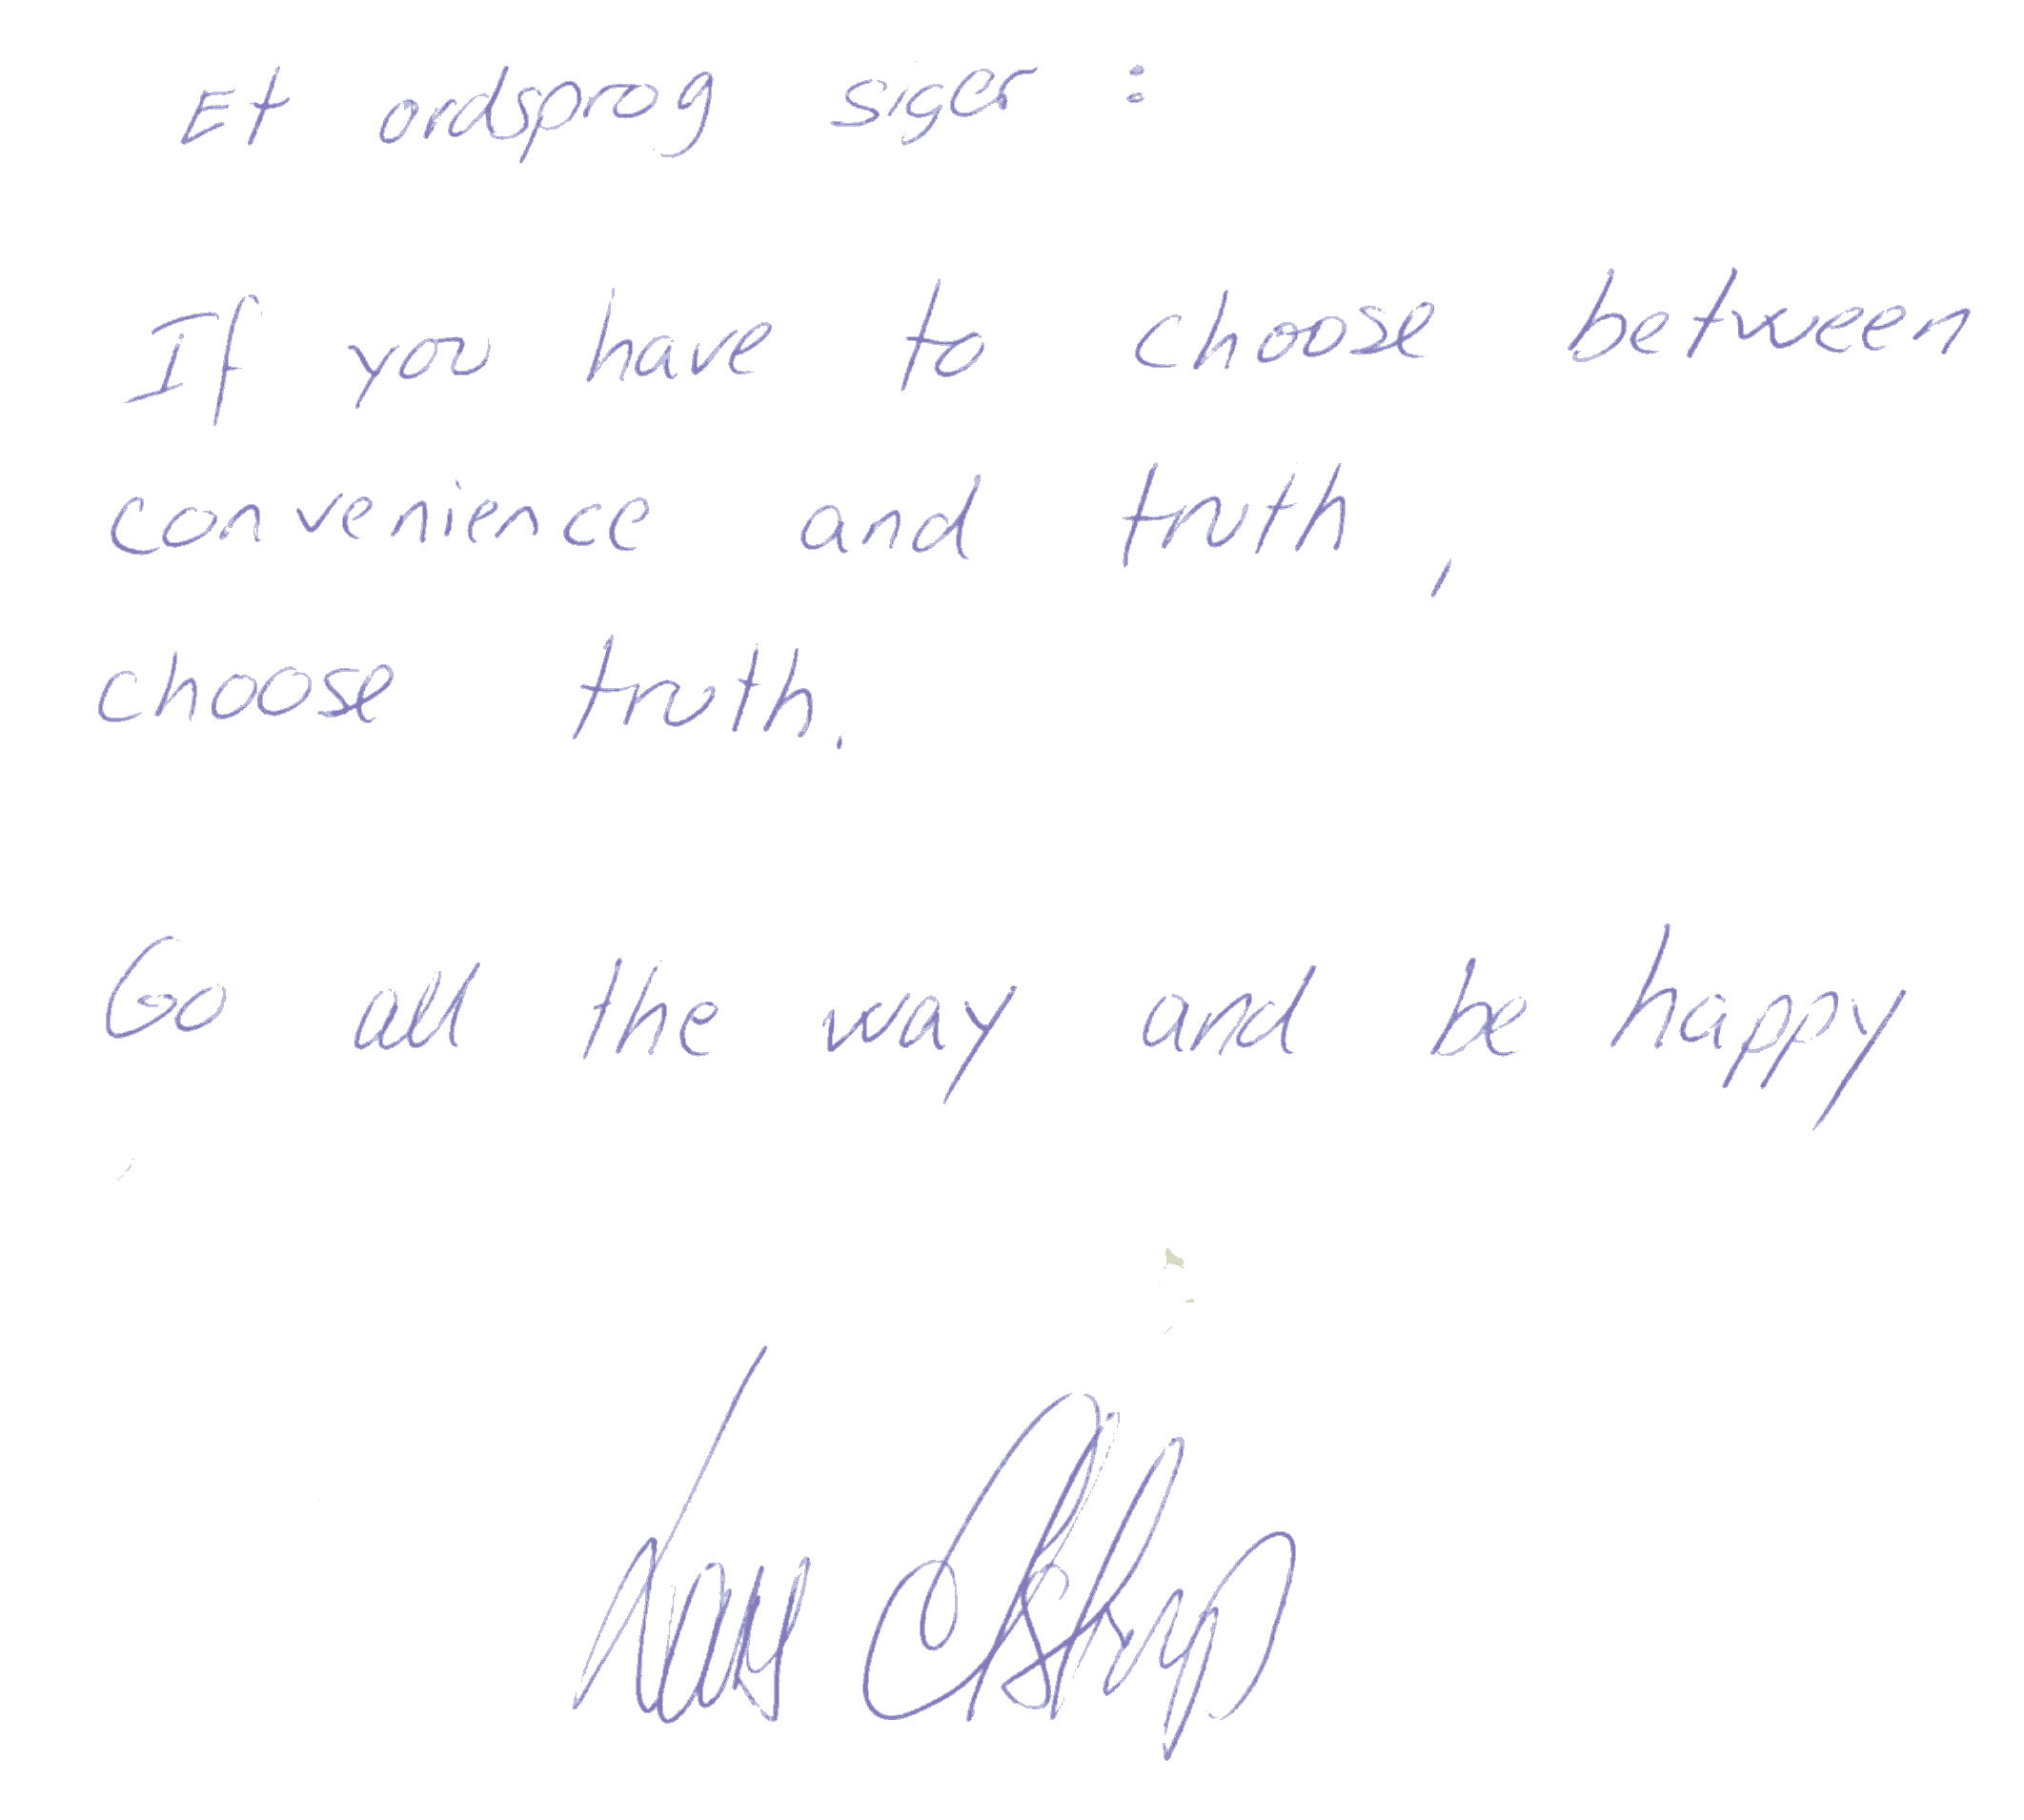 Et ordsprog siger :
If you have to choose between
convenience and truth,
choose truth.
Go all the way and be happy